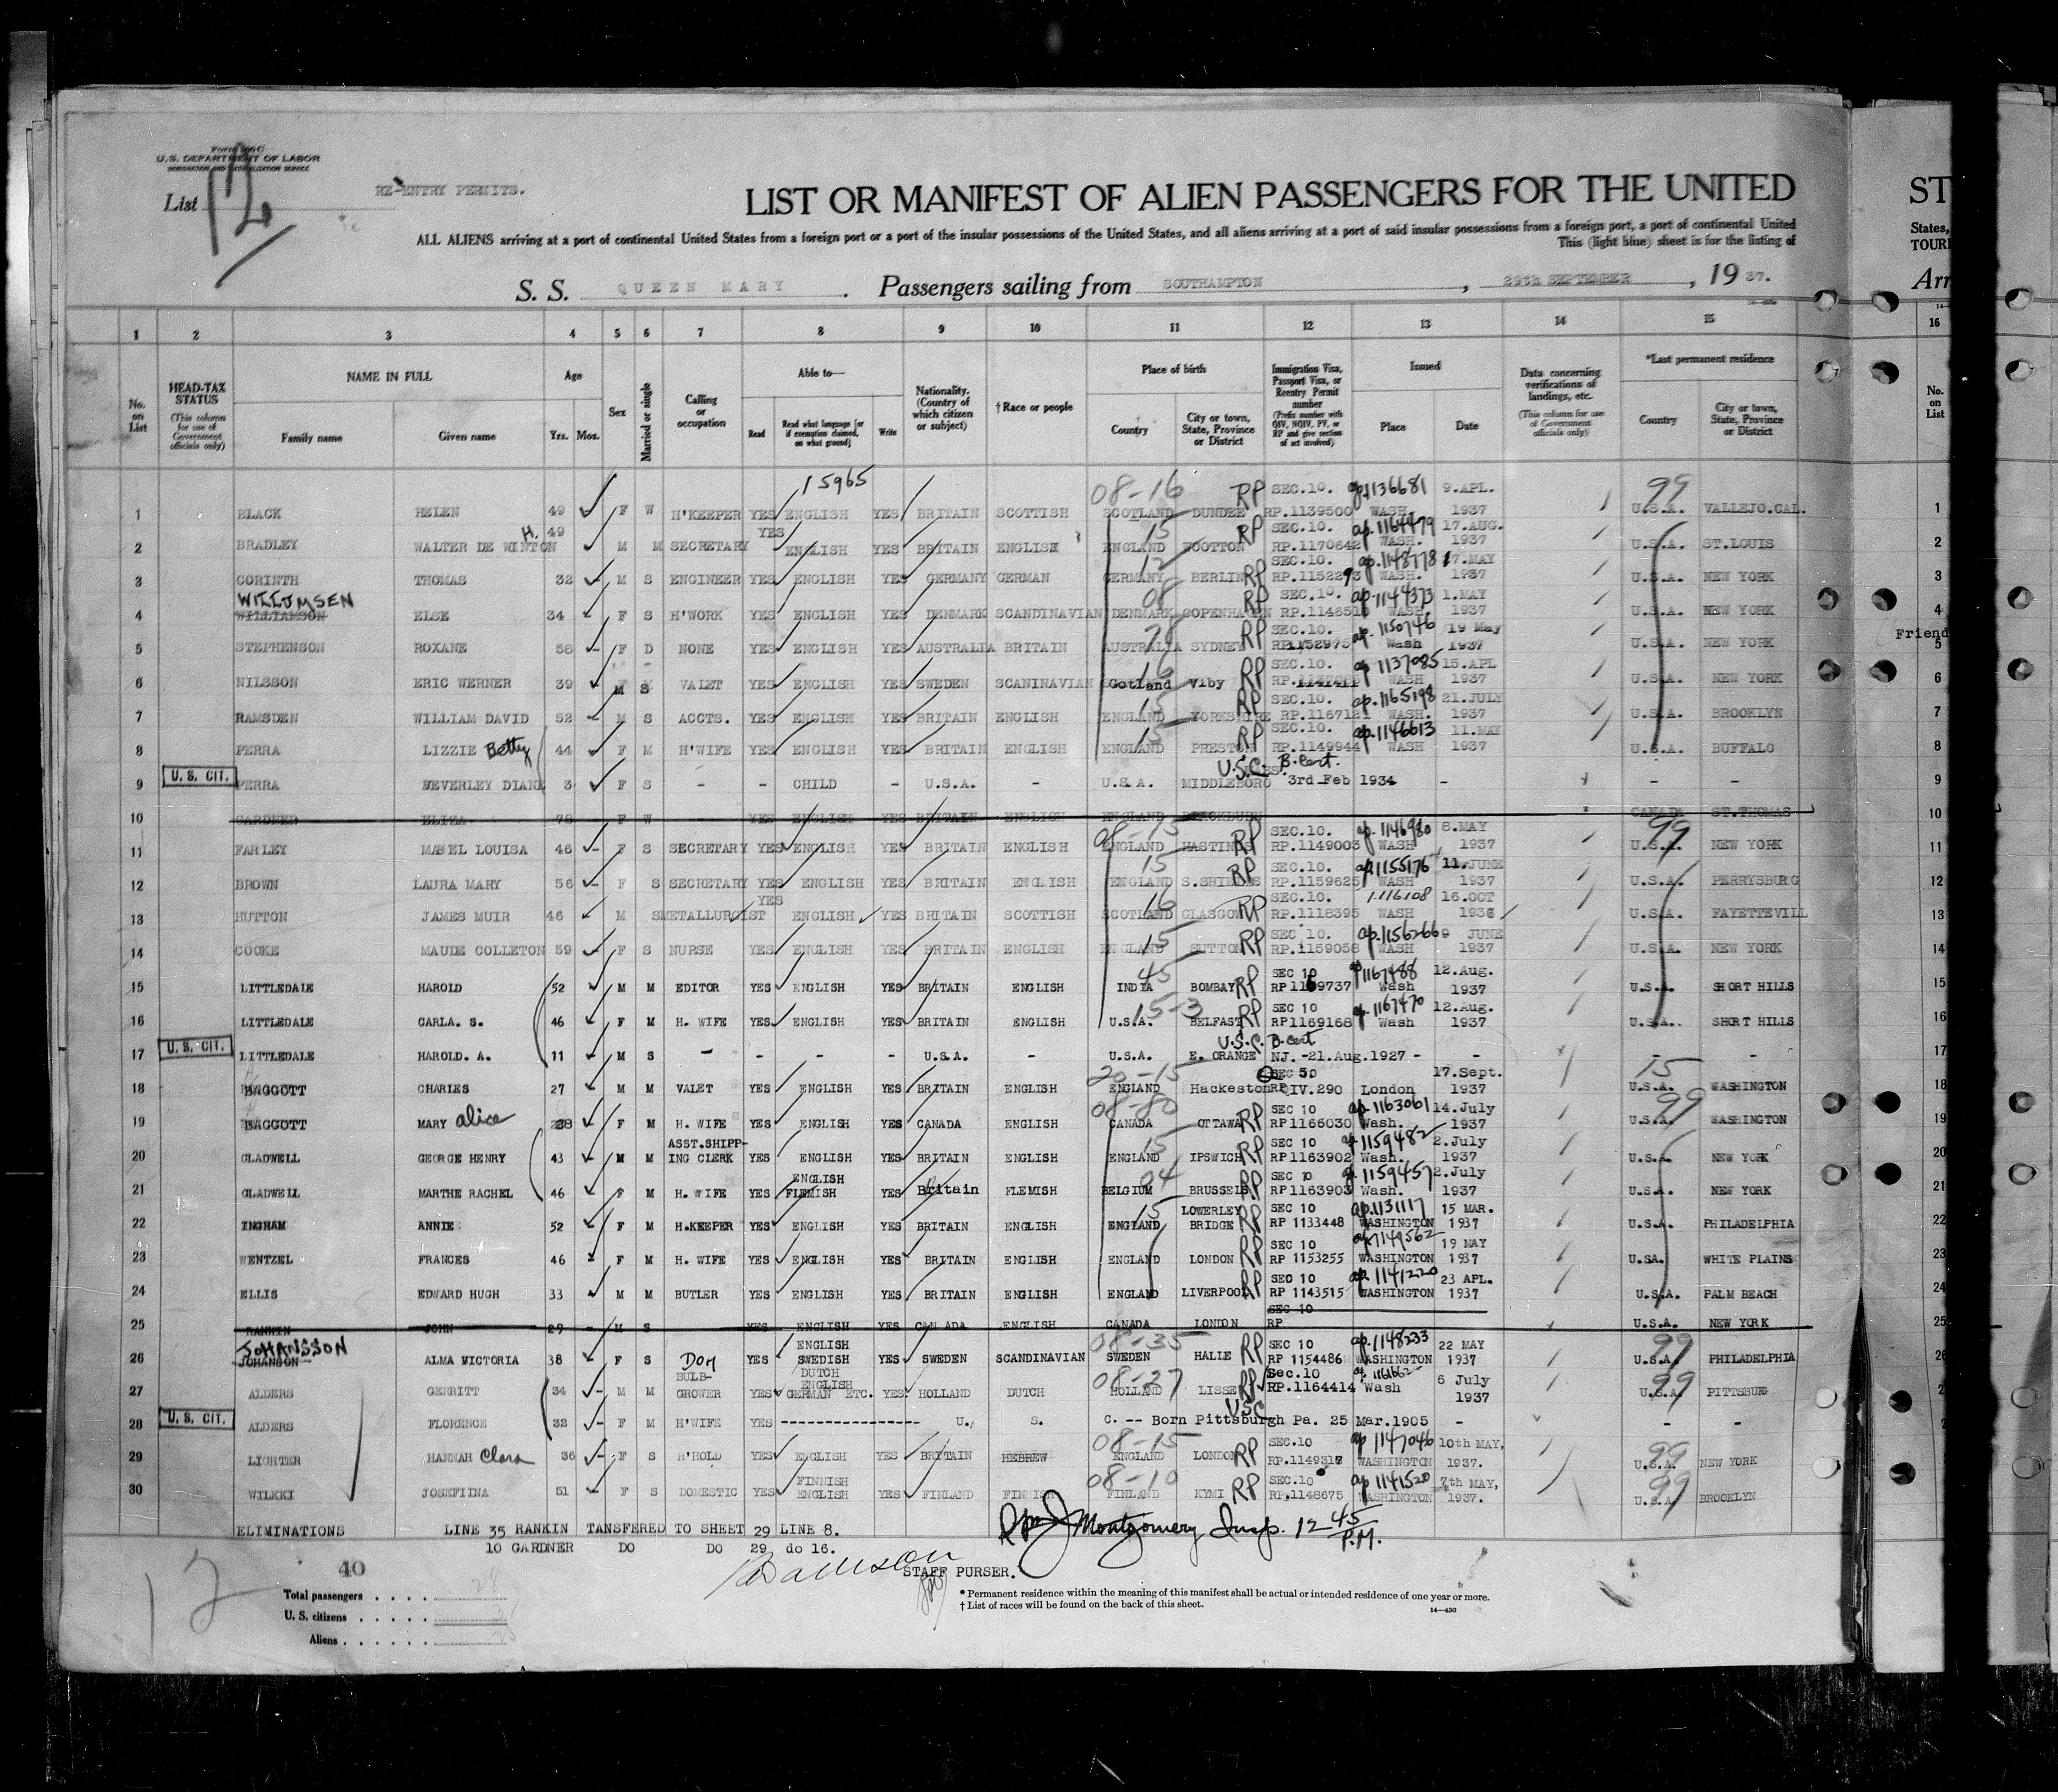 Form 500 C
U.S. DEPARTMENT OF LABOR
IMMIGRATION AND NATURALIZATION SERVICE
List 12
RE-ENTRY PERMITS.
LIST OR MANIFEST OF ALIEN PASSENGERS FOR THE UNITED
ALL ALIENS arriving at a port of continental United States from a foreign port or a port of the insular possessions of the United States, and all aliens arriving at a port of said insular possessions from a foreign port, a port of continental United
This (light blue) sheet is for the listing of
S. S. QUEEN MARY. Passengers sailing from SOUTHAMPTON, 29th SEPTEMBER, 1937.
1 2 3 4 5 6 7 8 9 10 11 12 13 14 15
No. on List
HEAD-TAX STATUS (This column for use of Government officials only)
NAME IN FULL
Family name Given name
Age
Yrs. Mos.
Sex
Married or single
Calling or occupation
Able to—
Read Read what language [or if exemption claimed, on what ground] Write
Nationality. (Country of which citizen or subject)
† Race or people
Place of birth
Country City or town, State, Province or District
Immigration Visa, Passport Visa, or Reentry Permit number (Prefix number with QIV, NQIV, PV, or RP and give section of act involved)
Issued
Place Date
Data concerning verifications of landings, etc. (This column for use of Government officials only)
*Last permanent residence
Country City or town, State, Province or District
15965
1 BLACK HELEN 49 F W H'KEEPER YES ENGLISH YES BRITAIN SCOTTISH 08-16 SCOTLAND DUNDEE RP SEC.10. RP.1139500 ap.1136681 WASH. 9.APL. 1937 99 U.S.A. VALLEJO.CAL.
2 BRADLEY WALTER DE WINTON H. 49 M M SECRETARY YES ENGLISH YES BRITAIN ENGLISH 15 ENGLAND WOOTTON RP SEC.10. RP.1170642 ap.1164479 WASH. 17.AUG. 1937 U.S.A. ST.LOUIS
3 CORINTH THOMAS 32 M S ENGINEER YES ENGLISH YES GERMANY GERMAN 12 GERMANY BERLIN RP SEC.10. RP.1152293 ap.1148778 WASH. 17.MAY 1937 U.S.A. NEW YORK
WILLUMSEN
4 WILLIAMSON ELSE 34 F S H'WORK YES ENGLISH YES DENMARK SCANDINAVIAN 08 DENMARK COPENHAGEN RP SEC.10. ap.1144373 WASH. 1.MAY 1937 U.S.A. NEW YORK
5 STEPHENSON ROXANE 58 F D NONE YES ENGLISH YES AUSTRALIA BRITAIN AUSTRALIA SYDNEY RP SEC.10. RP1152975 ap. 1150746 Wash 19 May 1937 U.S.A. NEW YORK
6 NILSSON ERIC WERNER 39 M S VALET YES ENGLISH YES SWEDEN SCANINAVIAN Gotland Viby RP SEC.10. ap 1137085 WASH 15.APL 1937 U.S.A. NEW YORK
7 RAMSDEN WILLIAM DAVID 52 M S ACCTS. YES ENGLISH YES BRITAIN ENGLISH 15 ENGLAND YORKSHIRE RP SEC.10. RP.1167121 ap.1165198 WASH. 21.JULY 1937 U.S.A. BROOKLYN
8 PERRA LIZZIE Betty 44 F M H'WIFE YES ENGLISH YES BRITAIN ENGLISH 15 ENGLAND PRESTON RP SEC.10. RP.1149944 ap.1146613 WASH 11.MAY 1937 U.S.A. BUFFALO
9 U. S. CIT. PERRA BEVERLEY DIANE 3 F S - - CHILD - U.S.A. - U.S.A. MIDDLEBORO U.S.C. B.Cert. 3rd Feb 1934 - - -
10 GARDNER ELIZA 78 F W YES ENGLISH YES BRITAIN ENGLISH ENGLAND BLACKBURN CANADA ST.THOMAS
11 FARLEY MABEL LOUISA 46 F S SECRETARY YES ENGLISH YES BRITAIN ENGLISH 08-15 ENGLAND HASTINGS RP SEC.10. RP.1149003 ap.1146980 WASH 8.MAY 1937 99 U.S.A. NEW YORK
12 BROWN LAURA MARY 56 F S SECRETARY YES ENGLISH YES BRITAIN ENGLISH 15 ENGLAND S.SHIELDS RP SEC.10. RP.1159625 ap.1155176 WASH 11.JUNE 1937 U.S.A. PERRYSBURG
13 HUTTON JAMES MUIR 46 M S METALLURGIST YES ENGLISH YES BRITAIN SCOTTISH 16 SCOTLAND GLASGOW RP SEC.10. RP.1118395 1.116108 WASH 16.OCT 1936 U.S.A. FAYETTEVILL
14 COOKE MAUDE COLLETON 59 F S NURSE YES ENGLISH YES BRITAIN ENGLISH 15 ENGLAND SUTTON RP SEC 10. RP.1159058 ap.1156266 WASH 9 JUNE 1937 U.S.A. NEW YORK
15 LITTLEDALE HAROLD 52 M M EDITOR YES ENGLISH YES BRITAIN ENGLISH 45 INDIA BOMBAY RP SEC 10 RP 1169737 ap1167488 Wash 12.Aug. 1937 U.S.A. SHORT HILLS
16 LITTLEDALE CARLA. S. 46 F M H. WIFE YES ENGLISH YES BRITAIN ENGLISH 15-3 U.S.A. BELFAST RP SEC 10 RP1169168 ap.1167470 Wash 12.Aug. 1937 U.S.A. SHORT HILLS
17 U. S. CIT. LITTLEDALE HAROLD. A. 11 M S - - - - U.S.A. - U.S.A. E. ORANGE U.S.C. B.Cert NJ. -21.Aug.1927 - - - -
18 BAGGOTT CHARLES 27 M M VALET YES ENGLISH YES BRITAIN ENGLISH 20-15 ENGLAND Hackeston SEC 5. QIV.290 London 17.Sept. 1937 15 U.S.A. WASHINGTON
19 BAGGOTT MARY Alice 28 F M H. WIFE YES ENGLISH YES CANADA ENGLISH 08-80 CANADA OTTAWA RP SEC 10 RP1166030 ap.1163061 Wash. 14.July 1937 99 U.S.A. WASHINGTON
20 GLADWELL GEORGE HENRY 43 M M ASST.SHIPP-ING CLERK YES ENGLISH YES BRITAIN ENGLISH 15 ENGLAND IPSWICH RP SEC 10 RP1163902 ap 1159482 Wash. 2.July 1937 U.S.A. NEW YORK
21 GLADWELL MARTHE RACHEL 46 F M H. WIFE YES ENGLISH FLEMISH YES Britain FLEMISH 04 BELGIUM BRUSSELS RP SEC 10 RP1163903 ap.1159457 Wash. 2.July 1937 U.S.A. NEW YORK
22 INGHAM ANNIE 52 F M H.KEEPER YES ENGLISH YES BRITAIN ENGLISH 15 ENGLAND LOWERLEY BRIDGE RP SEC 10 RP 1133448 ap.1131117 WASHINGTON 15 MAR. 1937 U.S.A. PHILADELPHIA
23 WENTZEL FRANCES 46 F M H. WIFE YES ENGLISH YES BRITAIN ENGLISH ENGLAND LONDON RP SEC 10 RP 1153255 ap.1149562 WASHINGTON 19 MAY 1937 U.SA. WHITE PLAINS
24 ELLIS EDWARD HUGH 33 M M BUTLER YES ENGLISH YES BRITAIN ENGLISH ENGLAND LIVERPOOL RP SEC 10 RP 1143515 ap. 1141220 WASHINGTON 23 APL. 1937 U.S.A. PALM BEACH
25 RANKIN JOHN 29 M S YES ENGLISH YES CANADA ENGLISH CANADA LONDON SEC 10 RP U.S.A. NEW YORK
JOHANSSON
26 JOHANSON ALMA VICTORIA 38 F S Dom YES ENGLISH SWEDISH YES SWEDEN SCANDINAVIAN 08-35 SWEDEN HALLE RP SEC 10 RP 1154486 ap.1148233 WASHINGTON 22 MAY 1937 99 U.S.A. PHILADELPHIA
27 ALDERS GERRITT 34 M M BULB-GROWER YES DUTCH ENGLISH GERMAN ETC. YES HOLLAND DUTCH 08-27 HOLLAND LISSE RP Sec.10 RP.1164414 Wash 6 July 1937 99 U.S.A. PITTSBUG
28 U. S. CIT. ALDERS FLORENCE 32 F M H'WIFE YES ------------------ U. S. C. -- Born Pittsburgh Pa. 25 Mar.1905 - - - USC
29 LICHTER HANNAH Clara 36 F S H'HOLD YES ENGLISH YES BRITAIN HEBREW 08-15 ENGLAND LONDON RP SEC.10 RP.1149317 ap 1147046 WASHINGTON 10th MAY, 1937. 99 U.S.A. NEW YORK
30 WILKKI JOSEFIINA 51 F S DOMESTIC YES FINNISH ENGLISH YES FINLAND FINNISH 08-10 FINLAND KYMI RP SEC.10 RP.1148675 ap.1141520 WASHINGTON 7th MAY, 1937. 99 U.S.A. BROOKLYN
ELIMINATIONS LINE 35 RANKIN TANSFERED TO SHEET 29 LINE 8.
10 GARDNER DO DO 29 do 16.
Montgomery Insp. 12 45 P.M.
STAFF PURSER.
12
40
Total passengers . . . .
U. S. citizens . . . . .
Aliens . . . . . .
* Permanent residence within the meaning of this manifest shall be actual or intended residence of one year or more.
† List of races will be found on the back of this sheet.
14—430
ST
States,
TOUR
Arr
16
No. on List
1
2
3
4
Friend
5
6
7
8
9
10
11
12
13
14
15
16
17
18
19
20
21
22
23
24
25
26
2
2
29
30